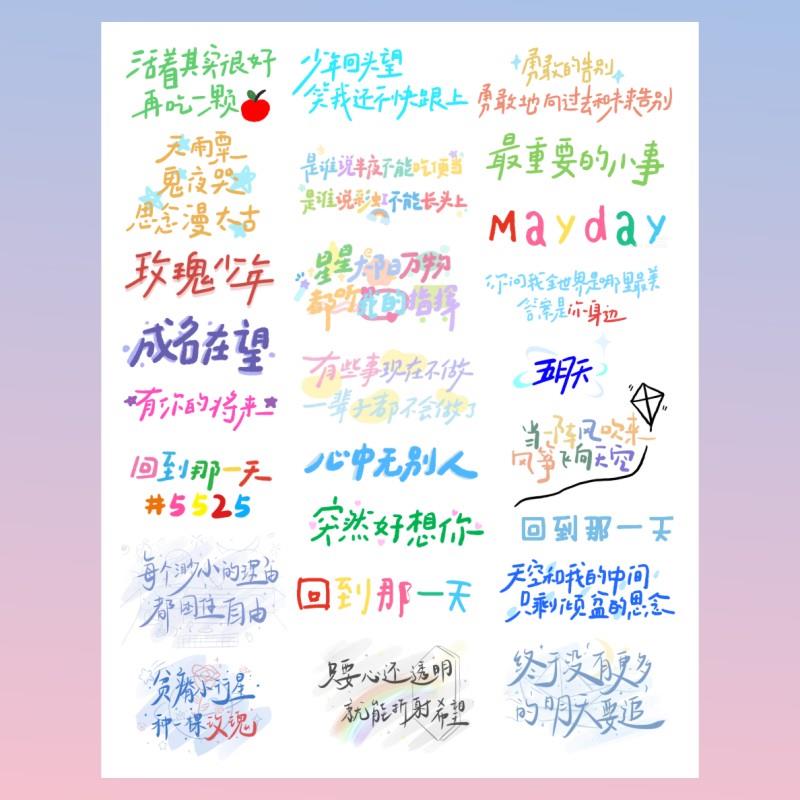 活着其实很好
再吃一颗
天雨粟
鬼夜哭
思念漫太古
玫瑰少年
成名在望
有你的将来
回到那一天
#5525
每个渺小的理由
都困住自由
贫瘠小行星
种一棵玫瑰
少年回头望
笑我还不快跟上
是谁说半夜不能吃便当
是谁说彩虹不能长头上
星星太阳万物
都听我的指挥
有些事现在不做
一辈子都不会做了
心中无别人
突然好想你
回到那一天
要心还透明
就能折射希望
勇敢的告别
勇敢地向过去和未来告别
最重要的小事
Mayday
你问我全世界是哪里最美
答案是你身边
五月天
当一阵风吹来
风筝飞向天空
回到那一天
天空和我的中间
只剩倾盆的思念
终于没有更多
的明天要追